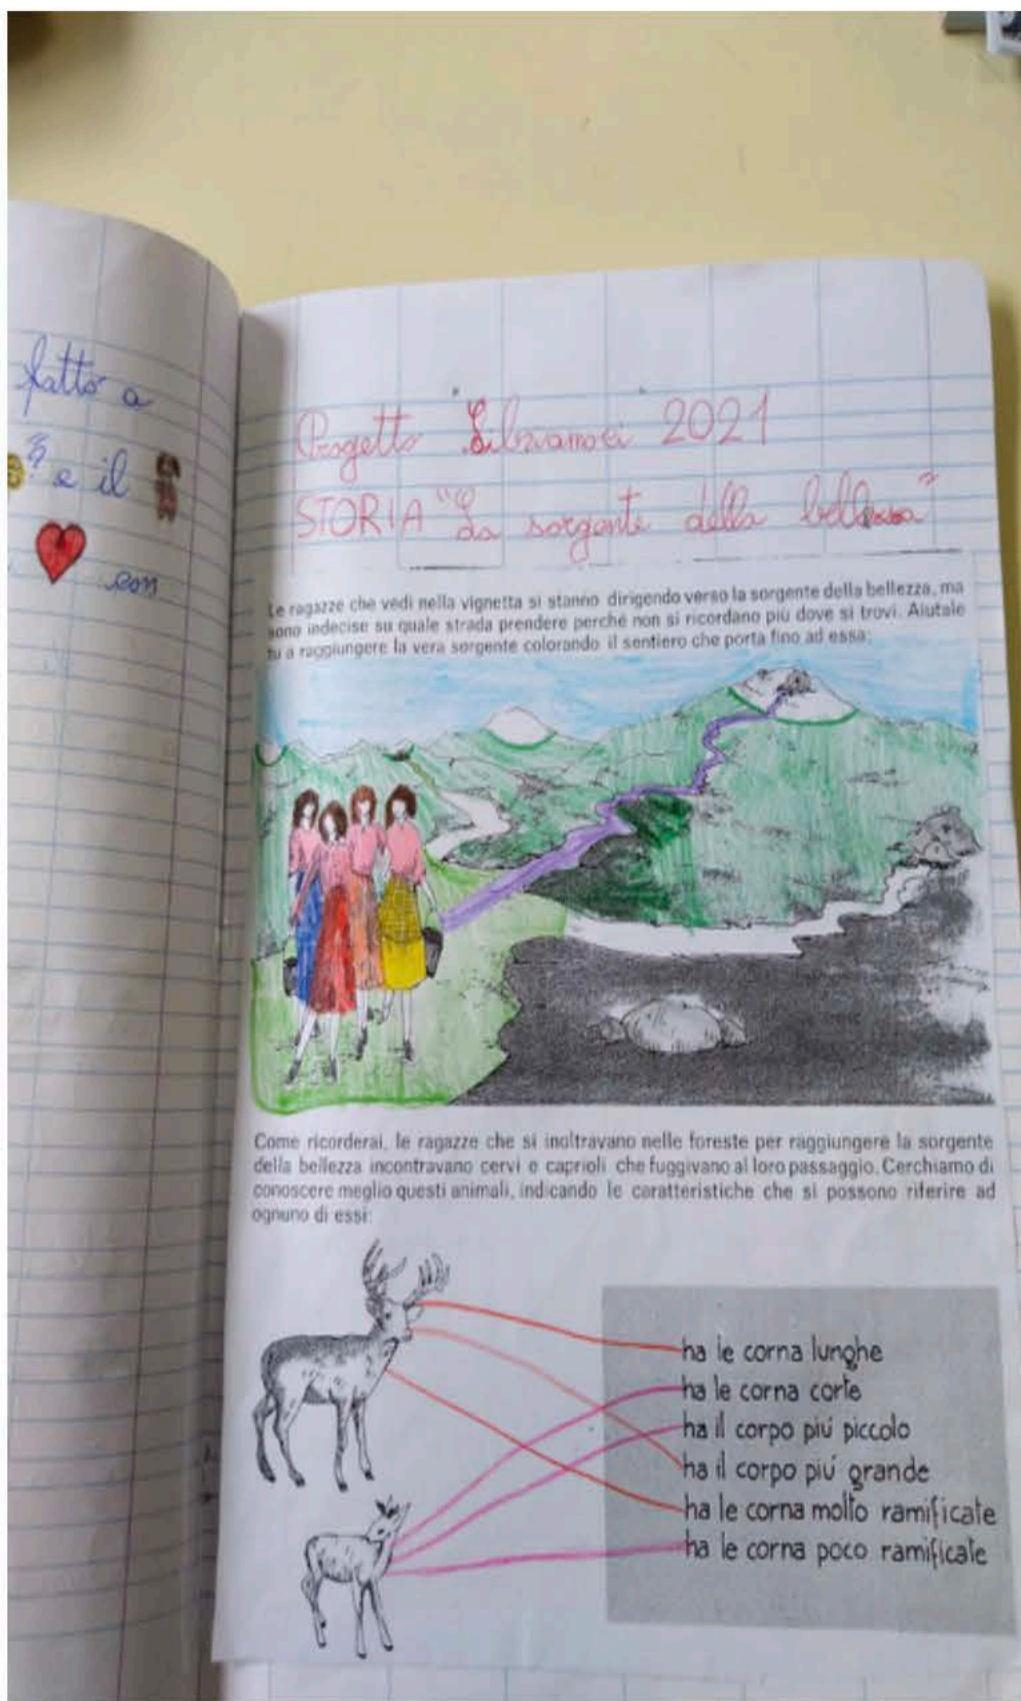 fatto a
e il
con
Progetto "Libriamoci 2021
STORIA "La sorgente della bellezza"
Le ragazze che vedi nella vignetta si stanno dirigendo verso la sorgente della bellezza, ma
sono indecise su quale strada prendere perché non si ricordano più dove si trovi. Aiutale
tu a raggiungere la vera sorgente colorando il sentiero che porta fino ad essa:
Come ricorderai, le ragazze che si inoltravano nelle foreste per raggiungere la sorgente
della bellezza incontravano cervi e caprioli che fuggivano al loro passaggio. Cerchiamo di
conoscere meglio questi animali, indicando le caratteristiche che si possono riferire ad
ognuno di essi:
ha le corna lunghe
ha le corna corte
ha il corpo piú piccolo
ha il corpo piú grande
ha le corna molto ramificate
ha le corna poco ramificate